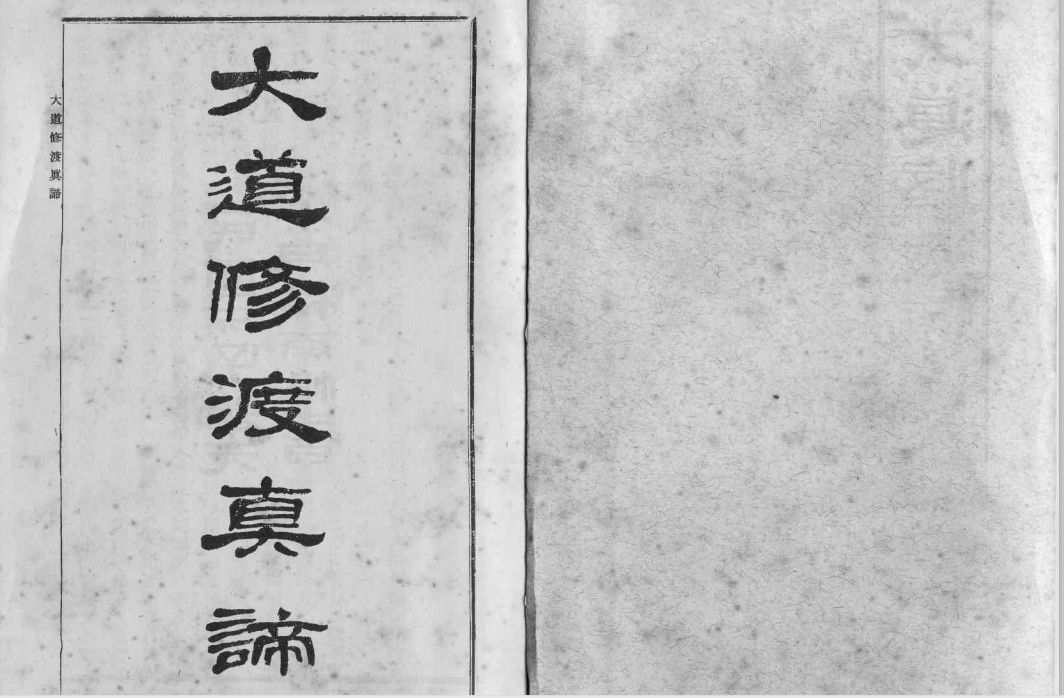 大道修渡眞諦
大道修渡眞諦